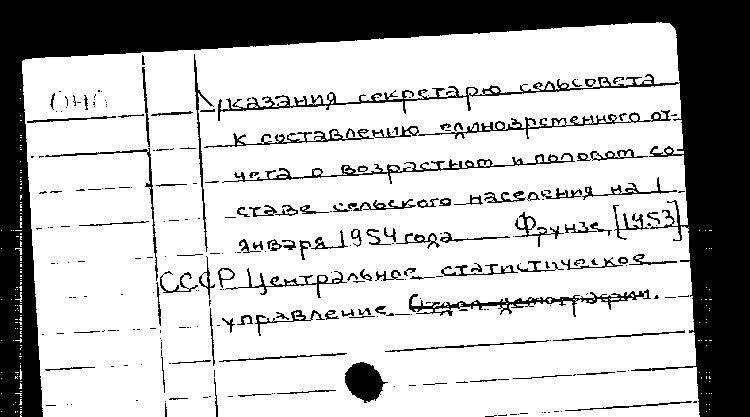 Указания секретарю сельсовета
к составлению единовременного от-
чета о возрастном и половом со-
ставе сельского населения на 1
января 1954 года Фрунзе, [1953]
СССР Центральное статистическое
управление. Отдел демографии.